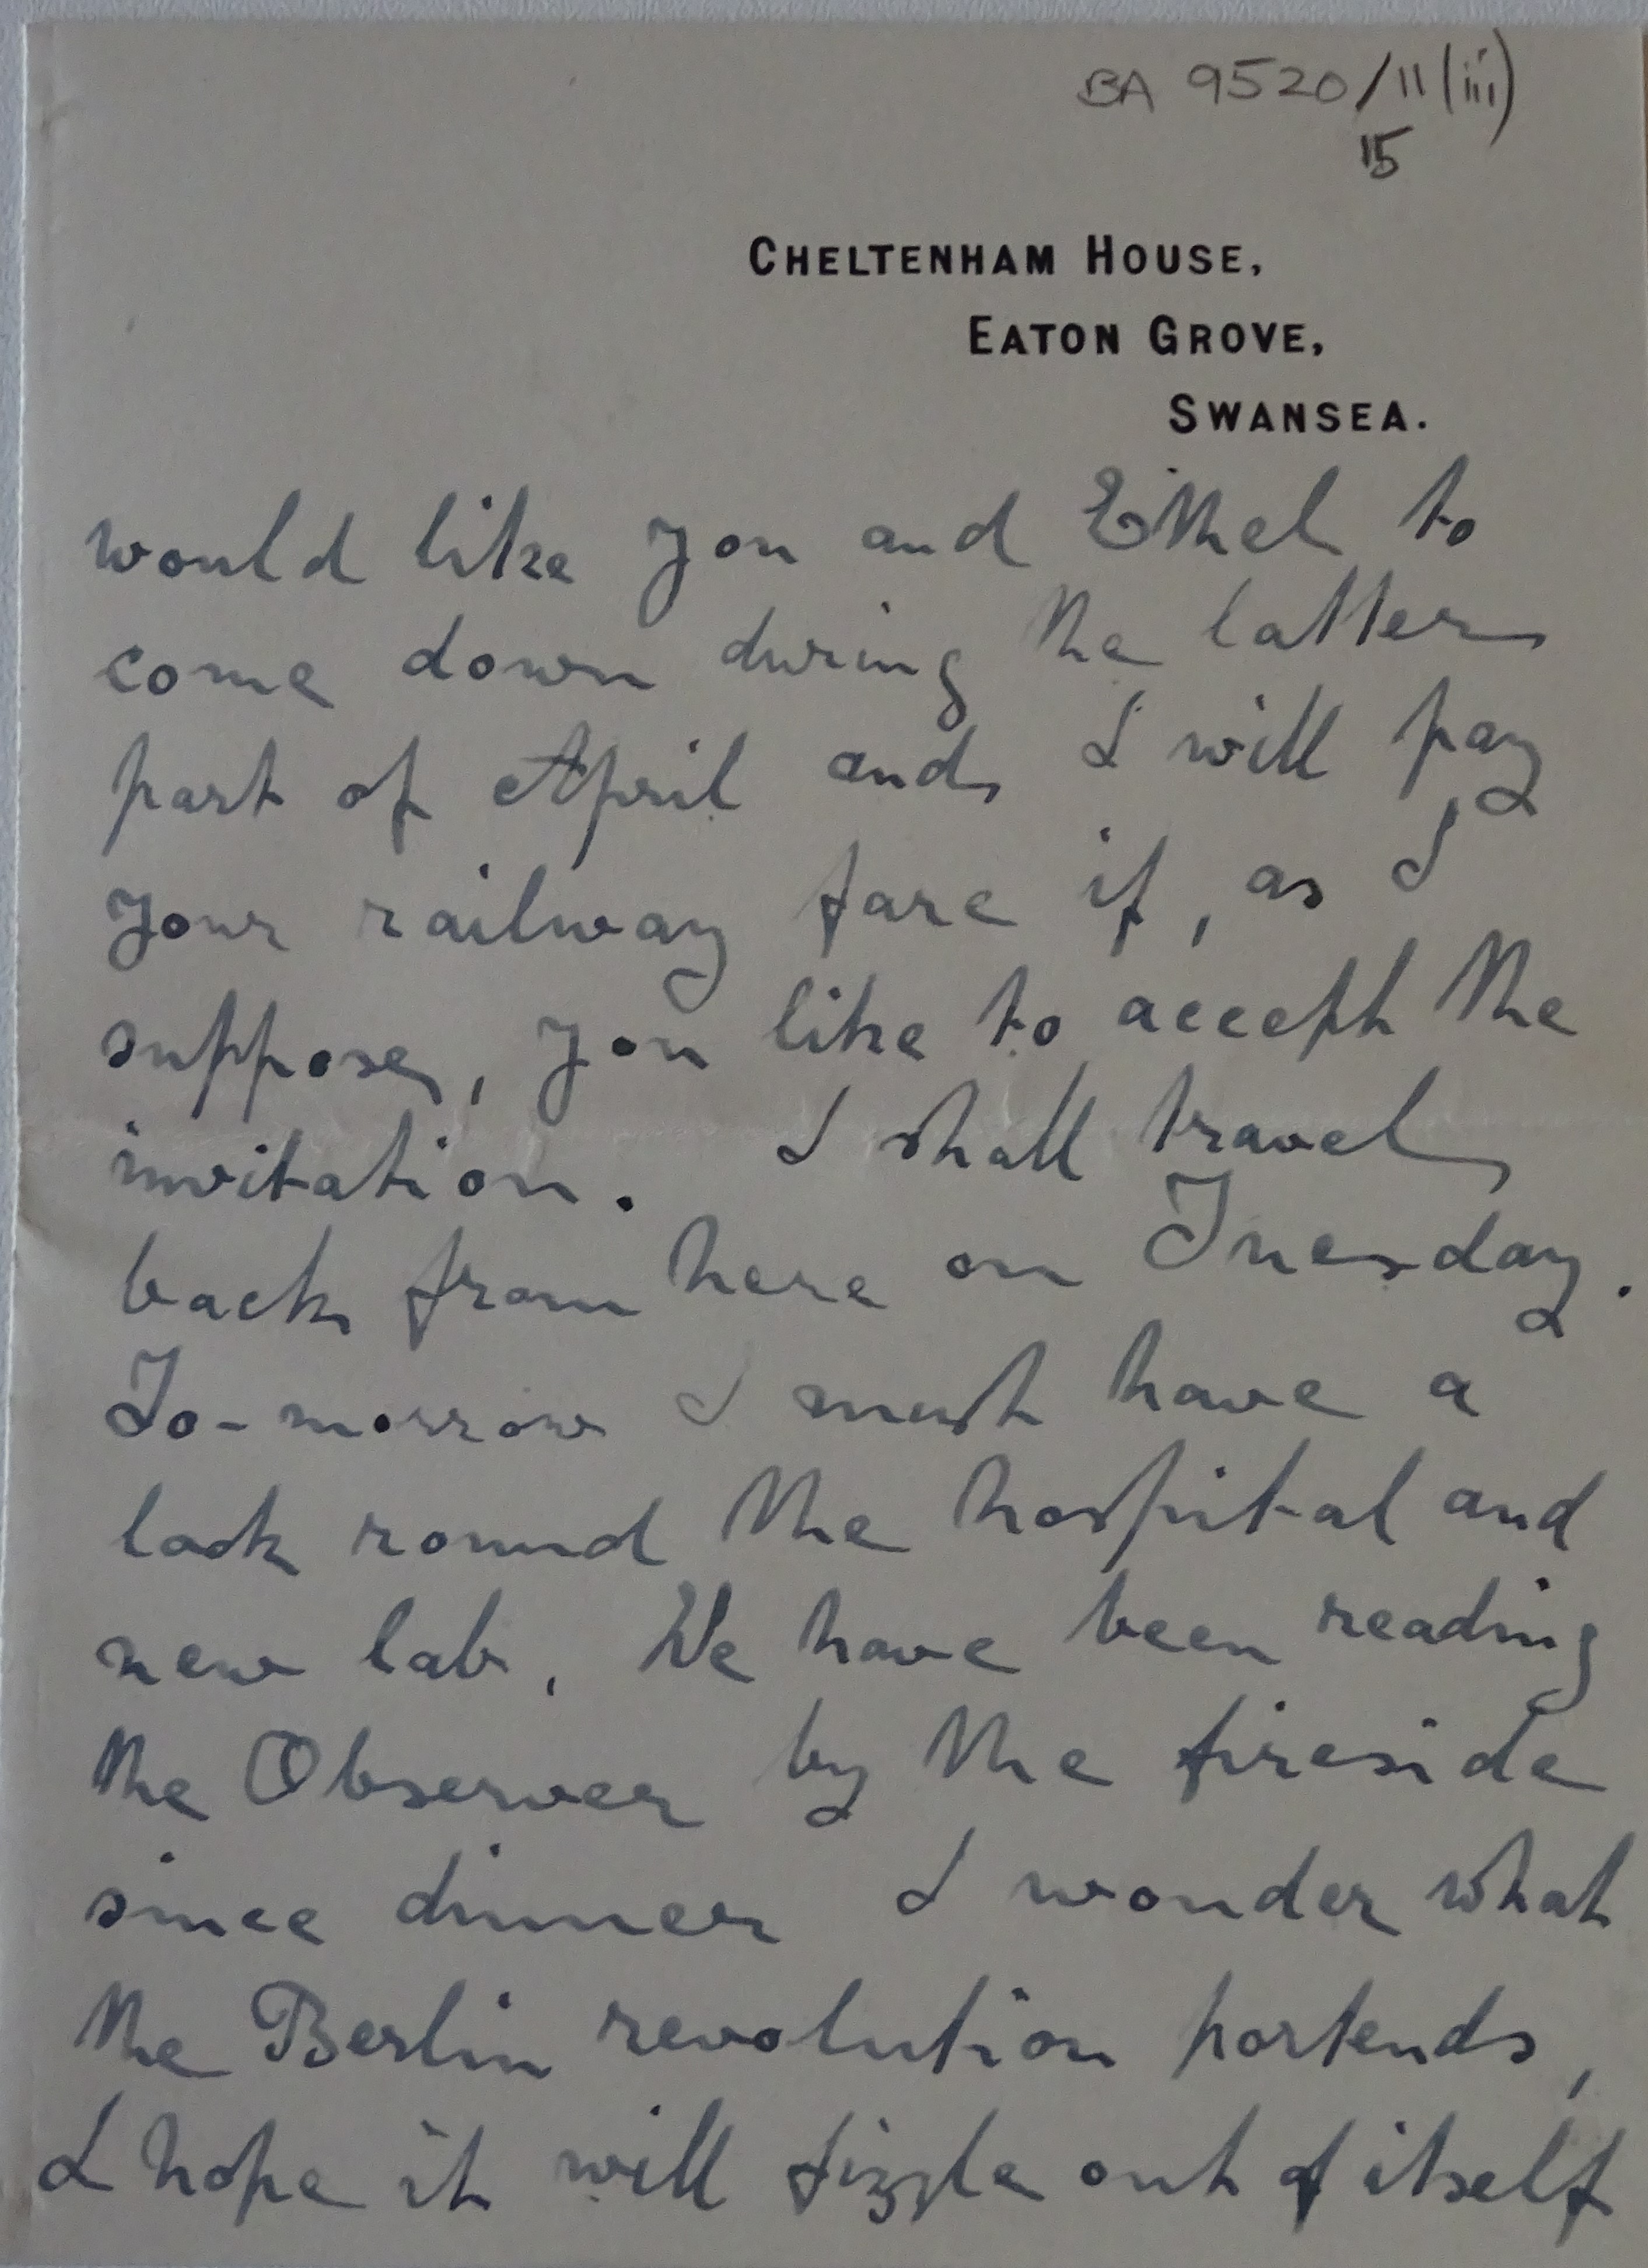 BA 9520/11(iii)
15
CHELTENHAM HOUSE,
EATON GROVE,
SWANSEA.
would like you and Ethel to
come down during the latter
part of April and I will pay
your railway fare if, as I
suppose, you like to accept the
invitation. I shall travel
back from here on Tuesday.
To-morrow I must have a
look round the hospital and
new lab. We have been reading
the Observer by the fireside
since dinner I wonder what
the Berlin revolution portends,
I hope it will fizzle out of itself